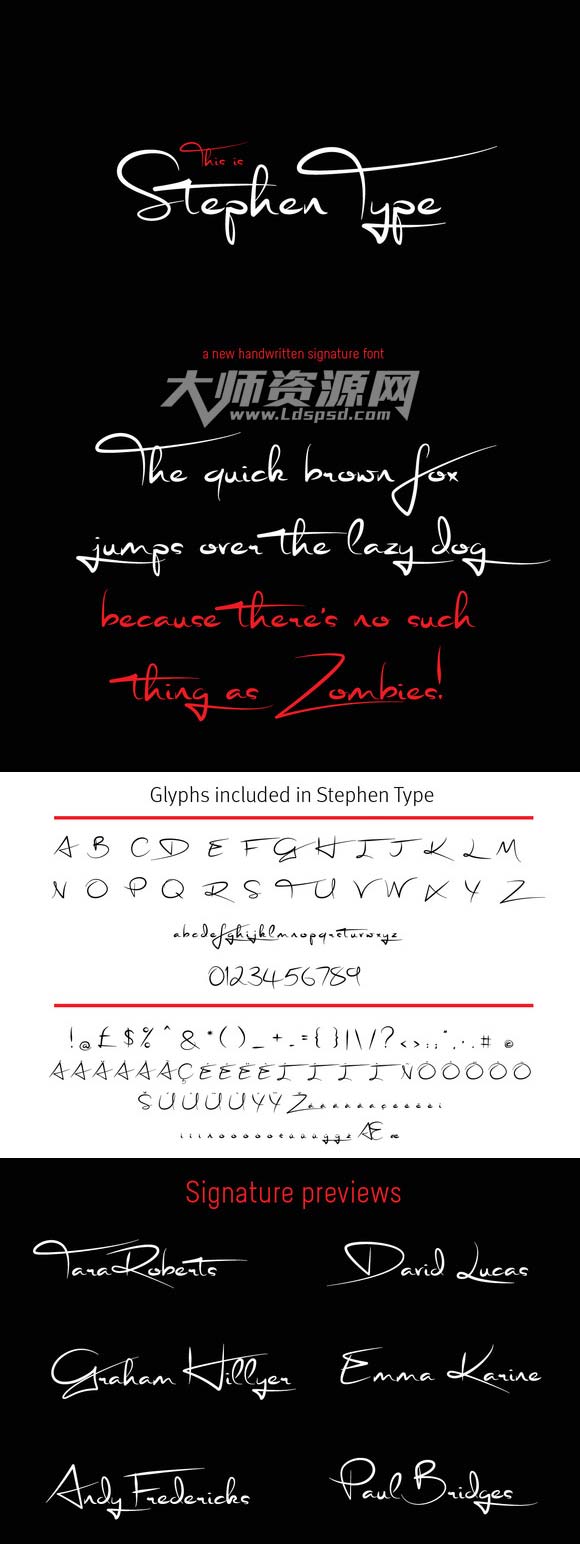 This is
Stephen Type
a new handwritten signature font
大师资源网
www.Ldspsd.com
The quick brown fox
jumps over the lazy dog
because there's no such
thing as Zombies!
Glyphs included in Stephen Type
A B C D E F G H I J K L M
N O P Q R S T U V W X Y Z
abcdefghijklmnopqrstuvwxyz
0123456789
! @ £ $ % ^ & * ( ) _ + - = { } | \ / ? < > : ; " , . # ©
Signature previews
Tara Roberts David Lucas
Graham Hillyer Emma Karine
Andy Fredericks Paul Bridges